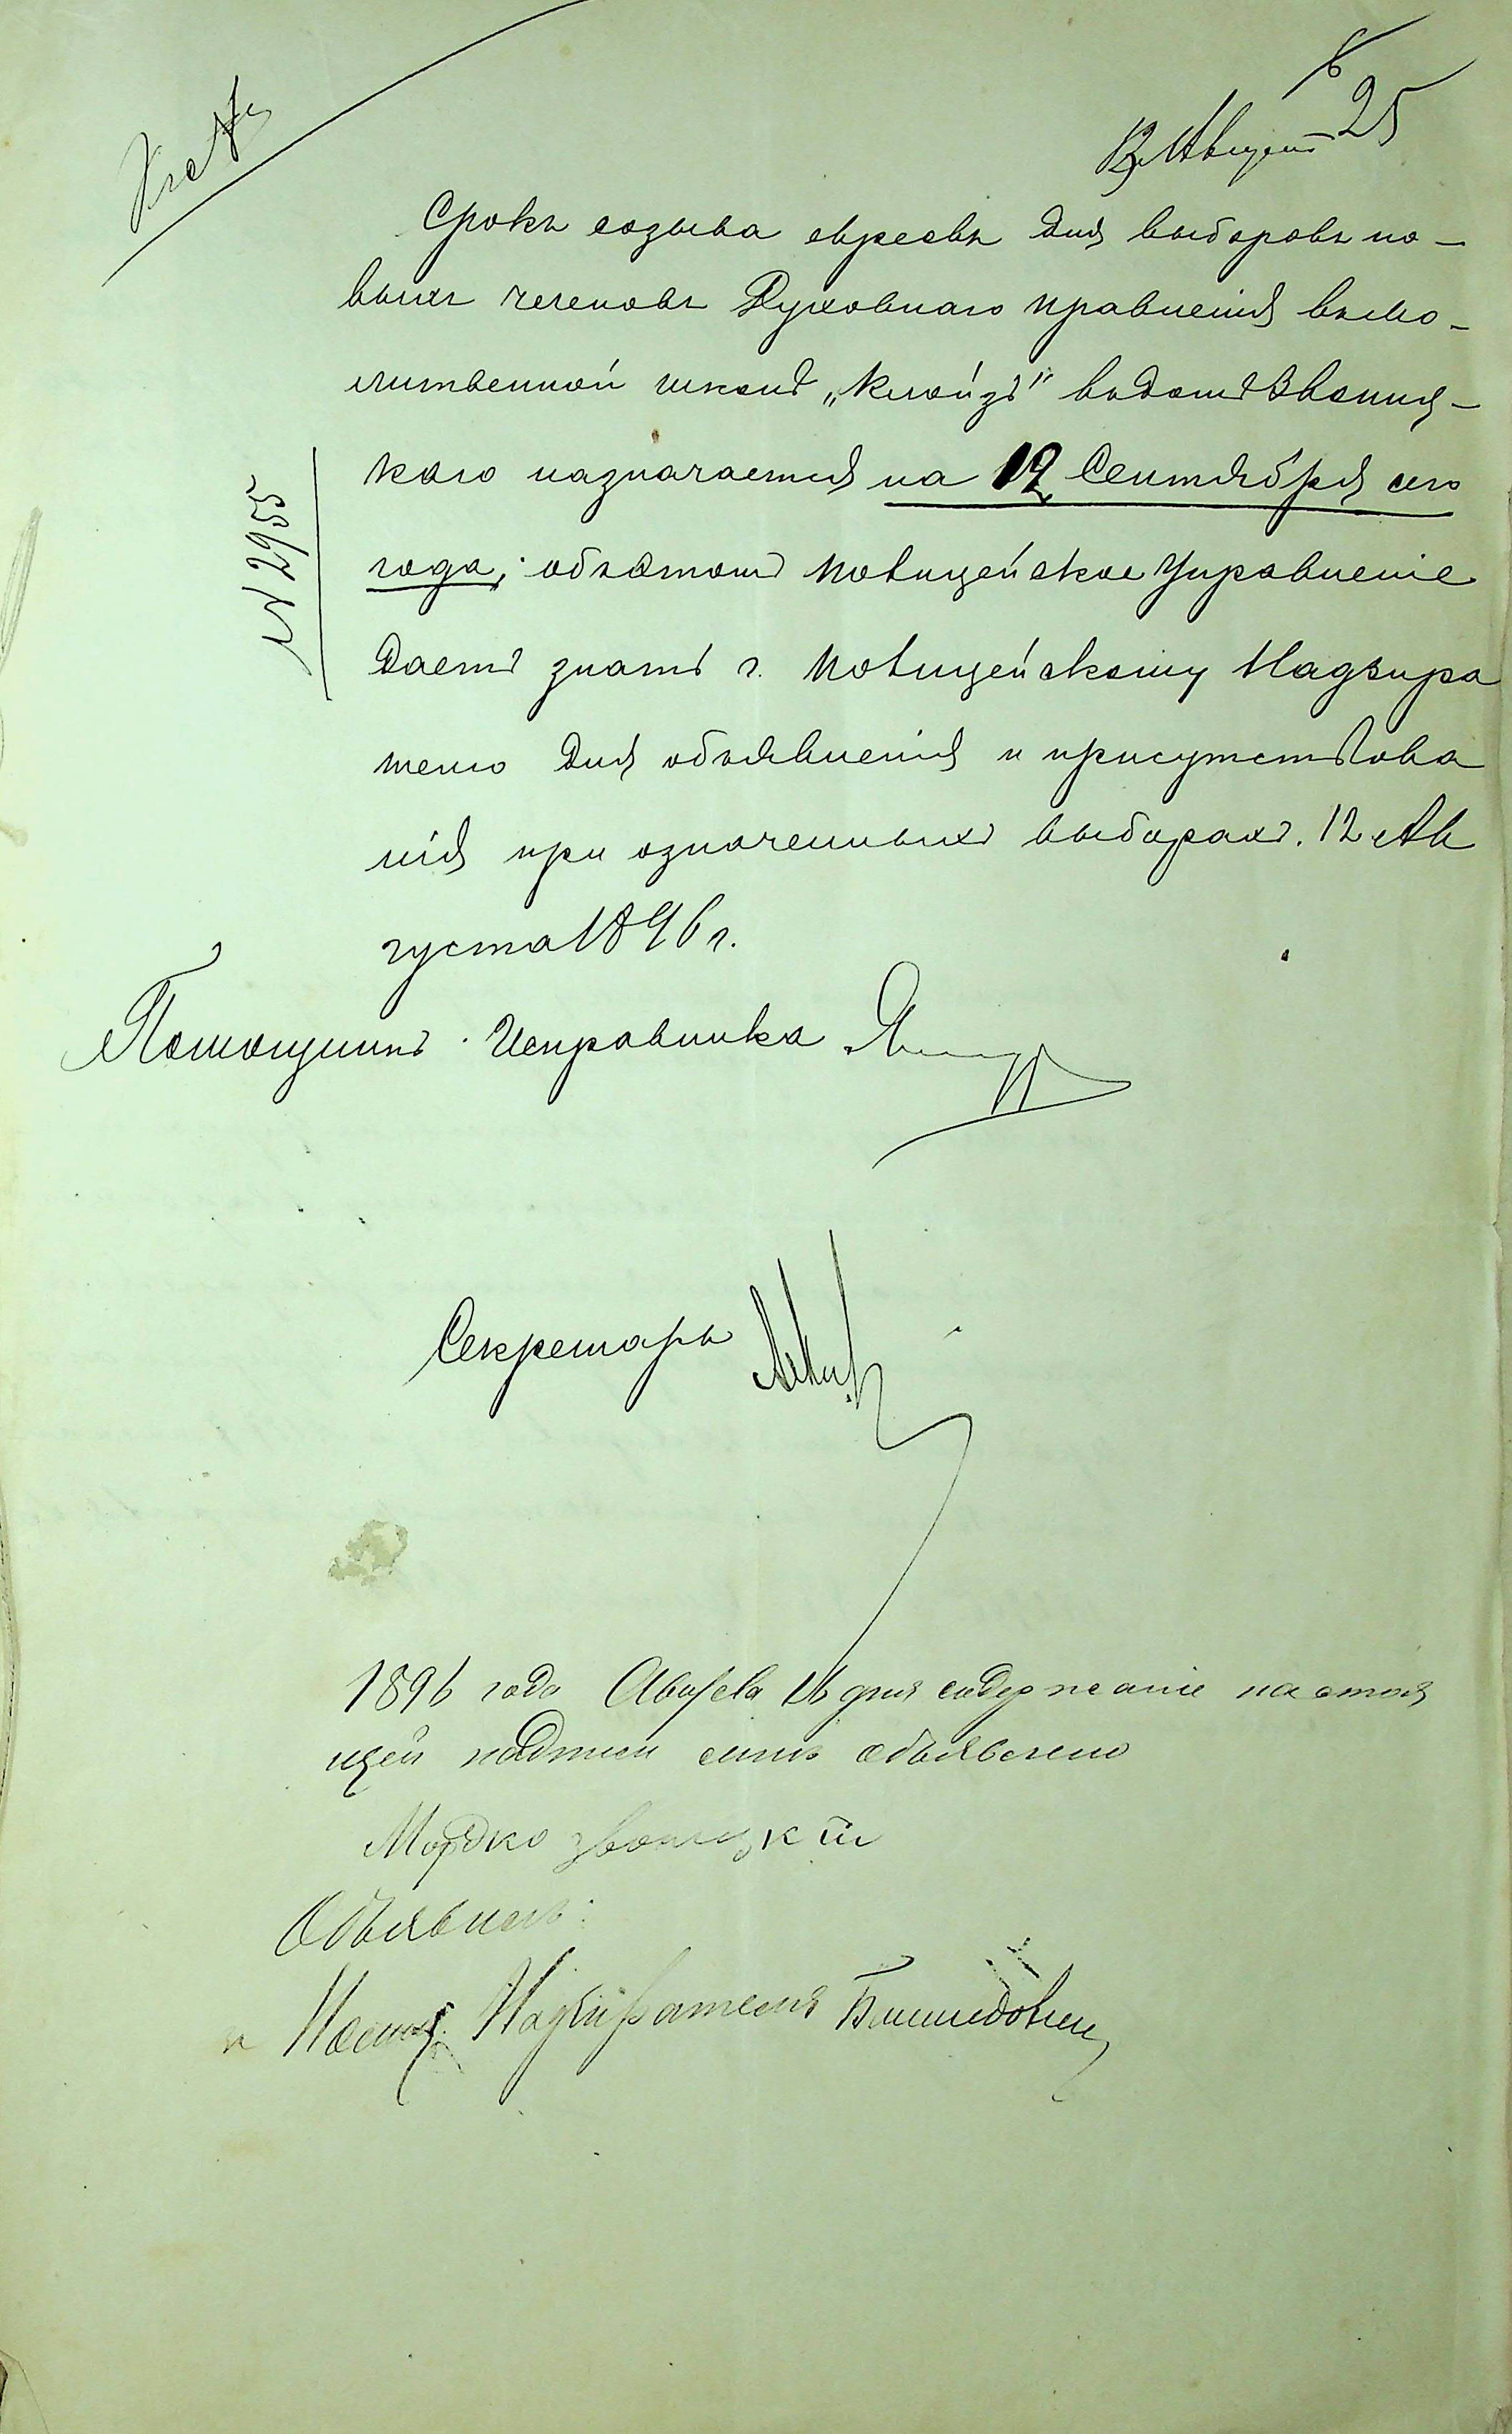 25
Августа
Срокъ созыва евреевъ для выборовъ но-
выхъ членовъ Духовнаго Правленія въ мо-
литвенной школѣ „Клойзъ" въ домѣ Звониц-
каго назначается на 12 Сентября сего
года; объ этомъ Полицейское Управленіе
даетъ знать г. Полицейскому Надзира
телю для объявленія и присутствова
нія при означенныхъ выборахъ. 12 Ав
густа 1896 г.
№ 2955
Помощникъ Исправника
Секретарь
1896 года Августа 16 дня содержаніе настоя
щей надписи мнѣ объявлено
Мордко Звоницкій
Объявилъ:
Надзирателя